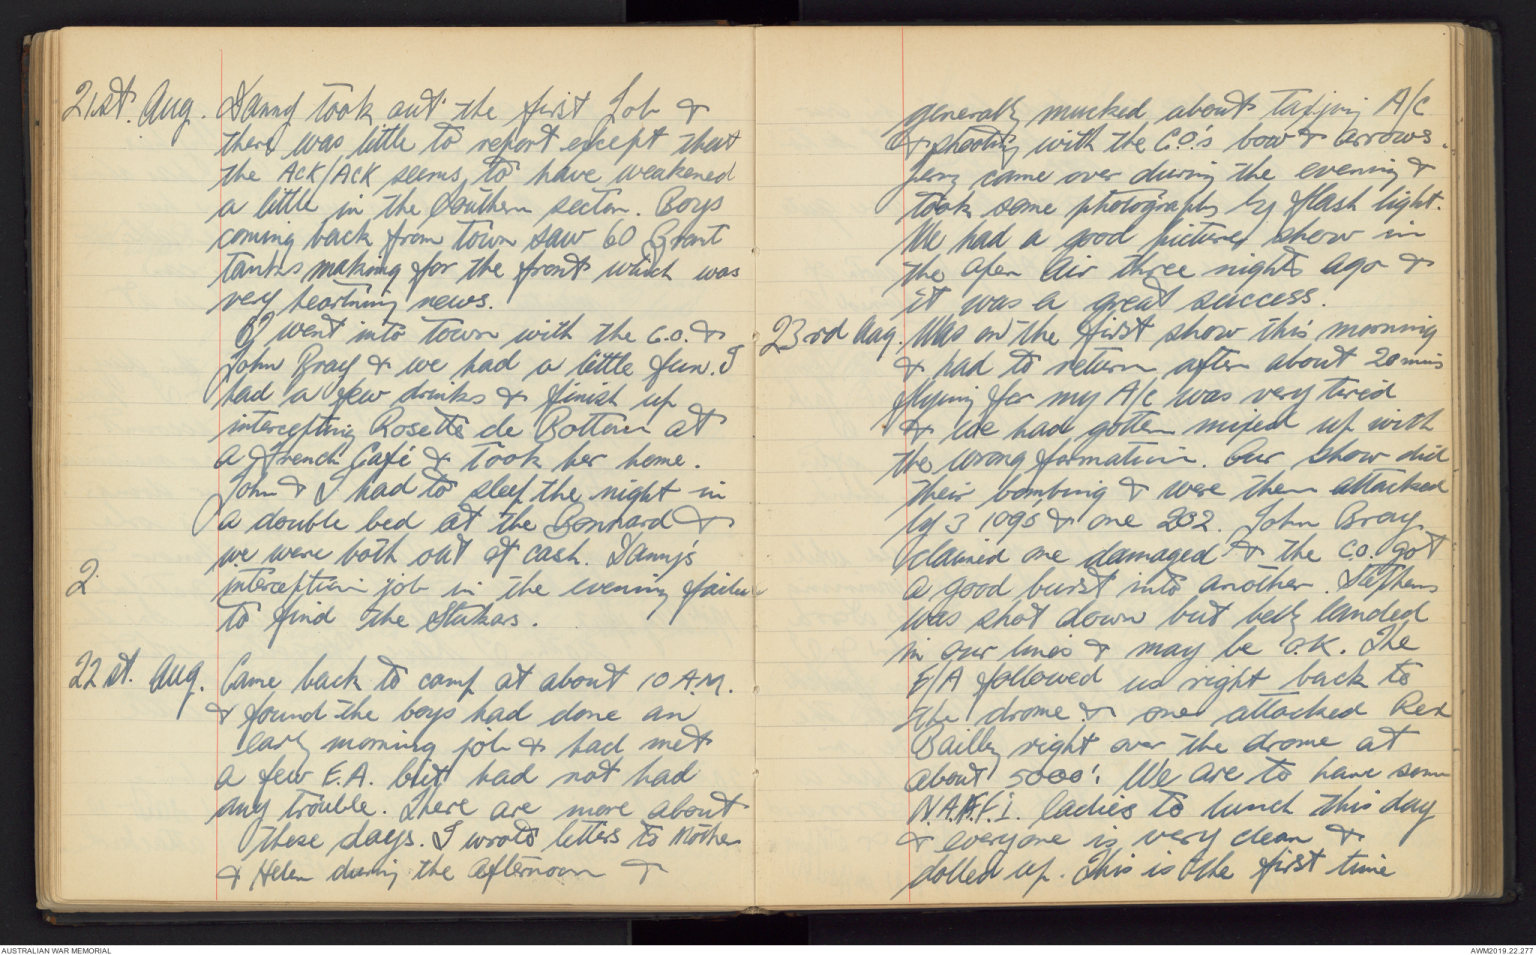 21st. Aug. Danny took out the first Job &
there was little to report except that
the Ack/Ack seems to have weakened
a little in the Southern sector. Boys
coming back from town saw 60 Grant
tanks making for the front which was
very heartning news.
I went into town with the C.O. &
John Bray & we had a little fun. I
had a few drinks & finish up
intercepting Rosette de Botton at
a French Café & took her home.
John & I had to sleep the night in
a double bed at the Bonhard &
we were both out of cash. Danny's
2
interception job in the evening failed
to find the Stukas.
22st. Aug. Came back to camp at about 10 A.M.
& found the boys had done an
early morning job & had met
a few E.A. but had not had
any trouble. There are more about
these days. I wrote letters to Mother
& Helen during the afternoon &
generally mucked about taxying A/c
& shooting with the C.O's bow & arrows.
Jerry came over during the evening &
took some photographs by flash light.
We had a good pictures show in
the open air three nights ago &
it was a great success.
23rd Aug. Was on the first show this morning
& had to return after about 20 mins
flying for my A/c was very tired
& we had gotten mixed up with
the wrong formation. Our show did
their bombing & were then attacked
by 3 109s & one 202. John Bray
claimed one damaged & the C.O. got
a good burst into another. Stephens
was shot down but belly landed
in our lines & may be O.K. The
E/A followed us right back to
the drome & one attacked Rex
Bailly right over the drome at
about 5000'. We are to have some
N.A.A.F.I. ladies to lunch this day
& everyone is very clean &
dolled up. This is the first time
AUSTRALIAN WAR MEMORIAL
AWM2019.22.277